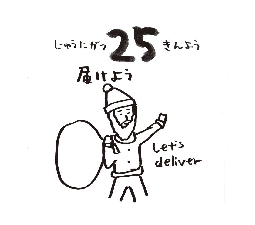 じゅうにがつ 25 きんよう
届けよう
Let's
deliver